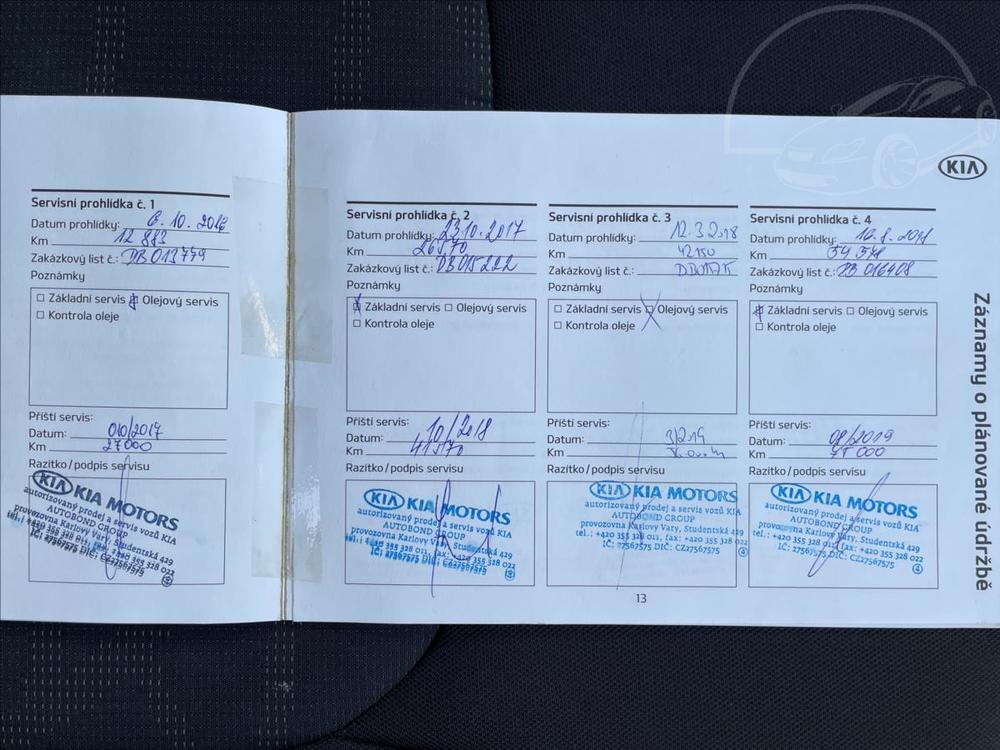 KIA
Záznamy o plánované údržbě
Servisní prohlídka č. 1
Datum prohlídky: 6. 10. 2016
Km 12 883
Zakázkový list č.: DB013779
Poznámky
Základní servis Olejový servis
Kontrola oleje
Příští servis:
Datum: 010/2017
Km 27000
Razítko/podpis servisu
KIA KIA MOTORS
autorizovaný prodej a servis vozů KIA
AUTOBOND GROUP
provozovna Karlovy Vary, Studentská 429
tel.: +420 355 328 011, fax: +420 355 328 022
IČ: 27567575 DIČ: CZ27567575
4
Servisní prohlídka č. 2
Datum prohlídky: 23.10.2017
Km 26570
Zakázkový list č.: DB015222
Poznámky
Základní servis Olejový servis
Kontrola oleje
Příští servis:
Datum: 10/2018
Km 41570
Razítko/podpis servisu
KIA KIA MOTORS
autorizovaný prodej a servis vozů KIA
AUTOBOND GROUP
provozovna Karlovy Vary, Studentská 429
tel.: +420 355 328 011, fax: +420 355 328 022
IČ: 27567575 DIČ: CZ27567575
Servisní prohlídka č. 3
Datum prohlídky: 12.3.2018
Km 42150
Zakázkový list č.:
Poznámky
Základní servis Olejový servis
Kontrola oleje
Příští servis:
Datum: 3/2019
Km
Razítko/podpis servisu
KIA KIA MOTORS
autorizovaný prodej a servis vozů KIA
AUTOBOND GROUP
provozovna Karlovy Vary, Studentská 429
tel.: +420 355 328 011, fax: +420 355 328 022
IČ: 27567575 DIČ: CZ27567575
4
Servisní prohlídka č. 4
Datum prohlídky:
Km
Zakázkový list č.: DB016408
Poznámky
Základní servis Olejový servis
Kontrola oleje
Příští servis:
Datum: 08/2019
Km
Razítko/podpis servisu
KIA KIA MOTORS
autorizovaný prodej a servis vozů KIA
AUTOBOND GROUP
provozovna Karlovy Vary, Studentská 429
tel.: +420 355 328 011, fax: +420 355 328 022
IČ: 27567575 DIČ: CZ27567575
4
13